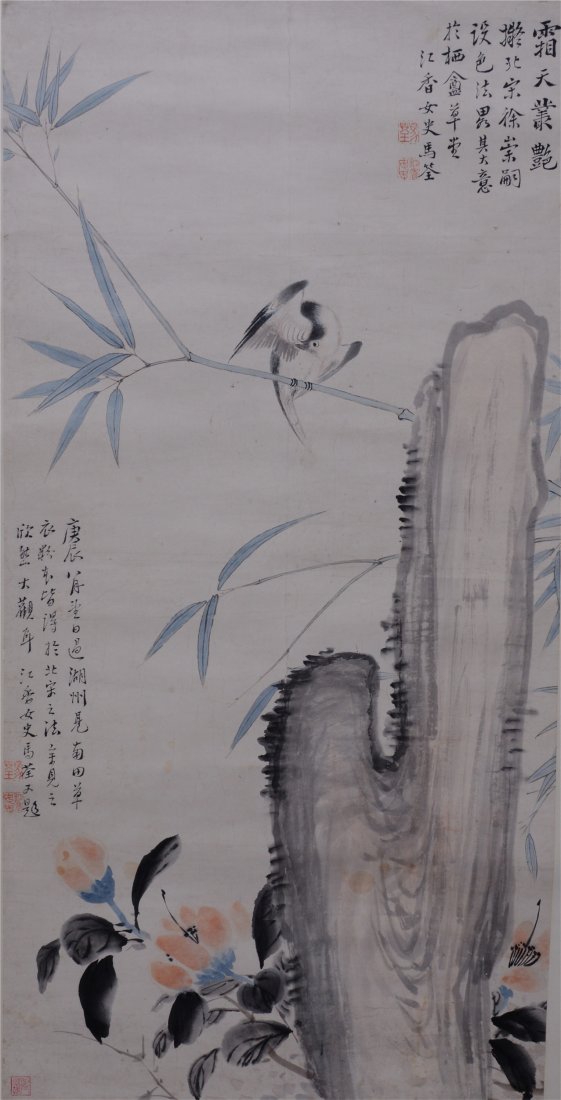 霜天叢艷
擬北宋徐崇嗣
設色法畧其大意
於栖盦草堂
江香女史馬荃
庚辰八月望日過湖州見南田草
衣粉本皆得於北宋之法余見之
欣然大觀耳 江香女史馬荃又題